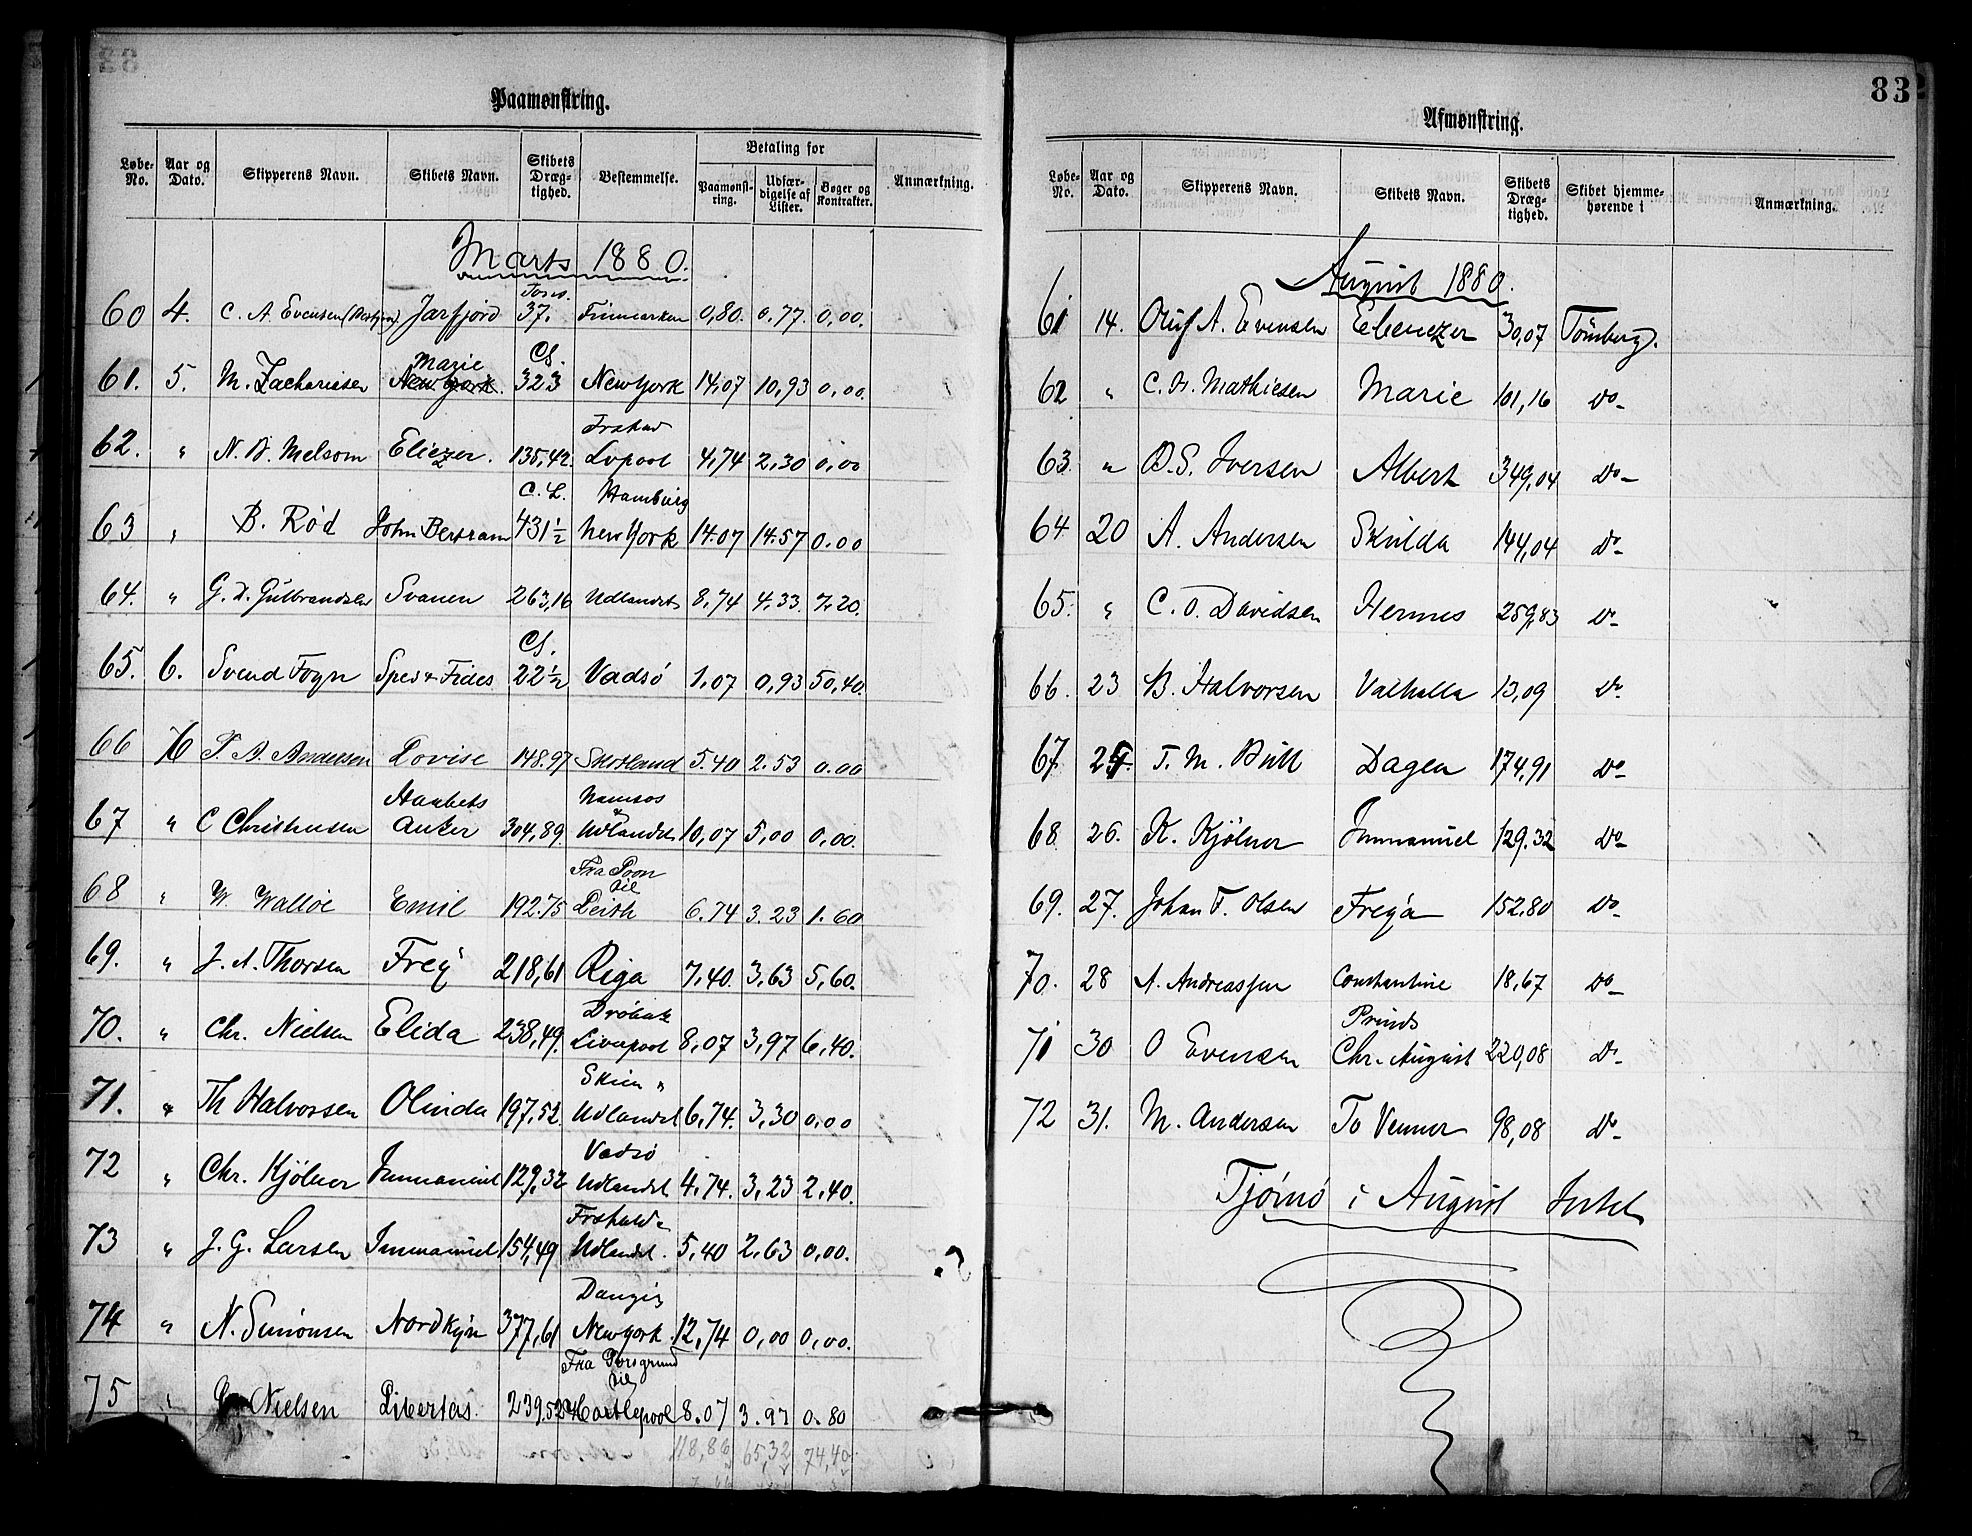 Paamønstring.
Løbe-No. Aar og Dato. Skipperens Navn. Skibets Navn. Skibets Dræg-tighed. Bestemmelse. Betaling for Paamønst-ring. Udfær-digelse af Lister. Bøger og Kontrakter. Anmærkning.
Marts 1880.
Tons.
60 4. C. A. Evensen Jarfjord 37. Finmarken 0,80. 0.77. 0,00.
Marie Cl.
61. 5. M. Zachariasen New York. 323 New York 14,07 10,93 0,00.
Frshavn
62. " N. B. Melsom Eliezer. 135,42. Lvpool 4,74 2,30 0,00
C. L. Hamburg
63 " B. Rød John Bertram 431 1/2 New York 14.07 14.57 0.00
64. " G. D. Gulbrandsen Svanen 263,16 Udlandet 8,74 4,33. 7,20.
Cl.
65. 6. Svend Foyn Spes & Fides 22 1/2 Vadsö 1,07 0,93 50,40.
66 6 P. A. Andersen Lovise 148.97 Skotland 5.40 2.53 0.00
Haabets Namsos
67 " C Christensen Anker 304,89. & Udlandet 10,07 5,00 0,00.
Fra Porn til
68 " W. Walløe Emil 192.75 Leith 6.74 3.23 1.60
69. " J. A. Thorsen Frey 218,61 Riga 7,40. 3,63 5,60.
Dröbak
70. " Chr. Nielsen Elida 238,49. Liverpool 8,07 3,97 6,40.
Skien "
71. " Th Halvorsen Olinda 197,52. Udlandet 6,74. 3,30 0,00
Vadsö
72 " Chr. Kjölner Immanuel 129,32 Udlandet 4,74. 3,23 2,40.
Frshald
73 " J. G. Larsen Immanuel 154,49 Udlandet. 5,40 2,63 0,00.
Danzig
74 " N. Simonsen Nordkyn 377,61 New York. 12,74 0,00 0,00.
Fra Porsgrund til
75 " Nielsen Libertas. 239.52 Hartlepool 8.07 3.97 0.80
118,86 65,32 74,40
83
Afmønstring.
Løbe-No. Aar og Dato. Skipperens Navn. Skibets Navn. Skibets Dræg-tighed. Skibet hjemme-hørende i Anmærkning.
August 1880.
61 14. Oluf A. Evensen Ebenezer 30,07 Tönsberg.
62 " C. H. Mathiesen Marie 101,16 do
63 " O. S. Iversen Albert 349,04 do
64 20 A. Andersen Skulda 144,04 do
65. " C. O. Davidsen Hermes 259,83 do
66. 23 B. Halvorsen Valhalla 13,09 do
67 24. T. M. Bull Dagen 174,91 do
68 26. K. Kjölner Immanuel 129.32 do
69. 27. Johan F. Olsen Freya 152,80 do
70. 28 A. Andreassen Constantine 18,67 do
Prinds
71 30 O Evensen Chr. August 220,08 do
72 31. M. Andersen To Venner 98,08 do
Tjömö i August Intet